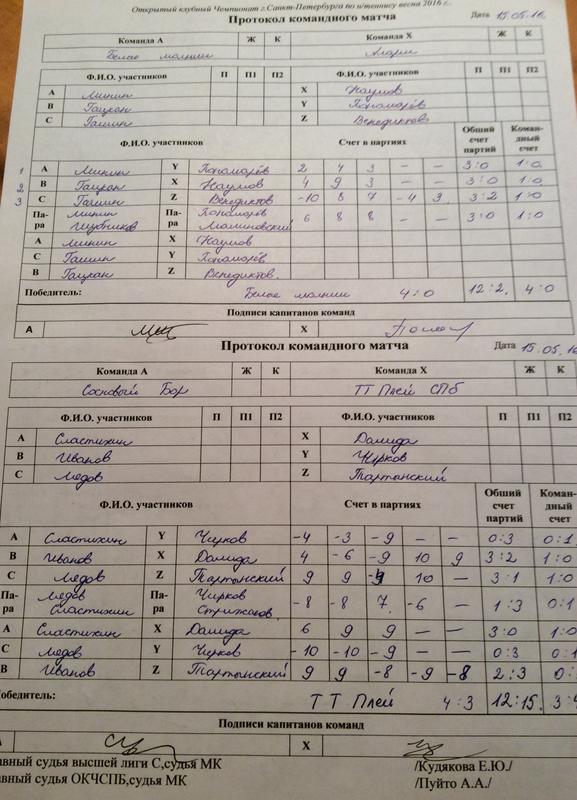 Открытый клубный Чемпионат г.Санкт-Петербурга по н/теннису весна 2016 г.
Протокол командного матча Дата 15.05.16.
Команда А Ж К Команда X Ж К
Белые молнии
Ф.И.О. участников П П1 П2 Ф.И.О. участников П П1 П2
А Минин X Наумов
В Гацкан Y Пономарёв
С Гашин Z Венедиктов
Ф.И.О. участников Счет в партиях Общий счет партий Командный счет
1 А Минин Y Пономарёв 2 4 3 – – 3:0 1:0
2 В Гацкан X Наумов 4 9 3 – – 3:0 1:0
3 С Гашин Z Венедиктов -10 8 7 -4 9 3:2 1:0
Пара Минин Пара Пономарёв 6 8 8 – – 3:0 1:0
Малиновский
А Минин X Наумов
С Гашин Y Пономарёв
В Гацкан Z Венедиктов
Победитель: Белые молнии 4:0 12:2 4:0
Подписи капитанов команд
А X
Протокол командного матча Дата 15.05.16
Команда А Ж К Команда X Ж К
Сосновый Бор ТТ Плей СПб
Ф.И.О. участников П П1 П2 Ф.И.О. участников П П1 П2
А Сластихин X Домида
В Иванов Y Чирков
С Медов Z Тартонский
Ф.И.О. участников Счет в партиях Общий счет партий Командный счет
А Сластихин Y Чирков -4 -3 -9 – – 0:3 0:1
В Иванов X Домида 4 -6 -9 10 9 3:2 1:0
С Медов Z Тартонский 9 9 -9 10 – 3:1 1:0
Пара Медов Пара Чирков -8 -8 7 -6 – 1:3 0:1
Сластихин Стрижаков
А Сластихин X Домида 6 9 9 – – 3:0 1:0
С Медов Y Чирков -10 -10 -9 – – 0:3 0:1
В Иванов Z Тартонский 9 9 -8 -9 -8 2:3 0:
Победитель: ТТ Плей 4:3 12:15 3:4
Подписи капитанов команд
А X
авный судья высшей лиги С,судья МК /Кудякова Е.Ю./
авный судья ОКЧСПБ,судья МК /Пуйто А.А./